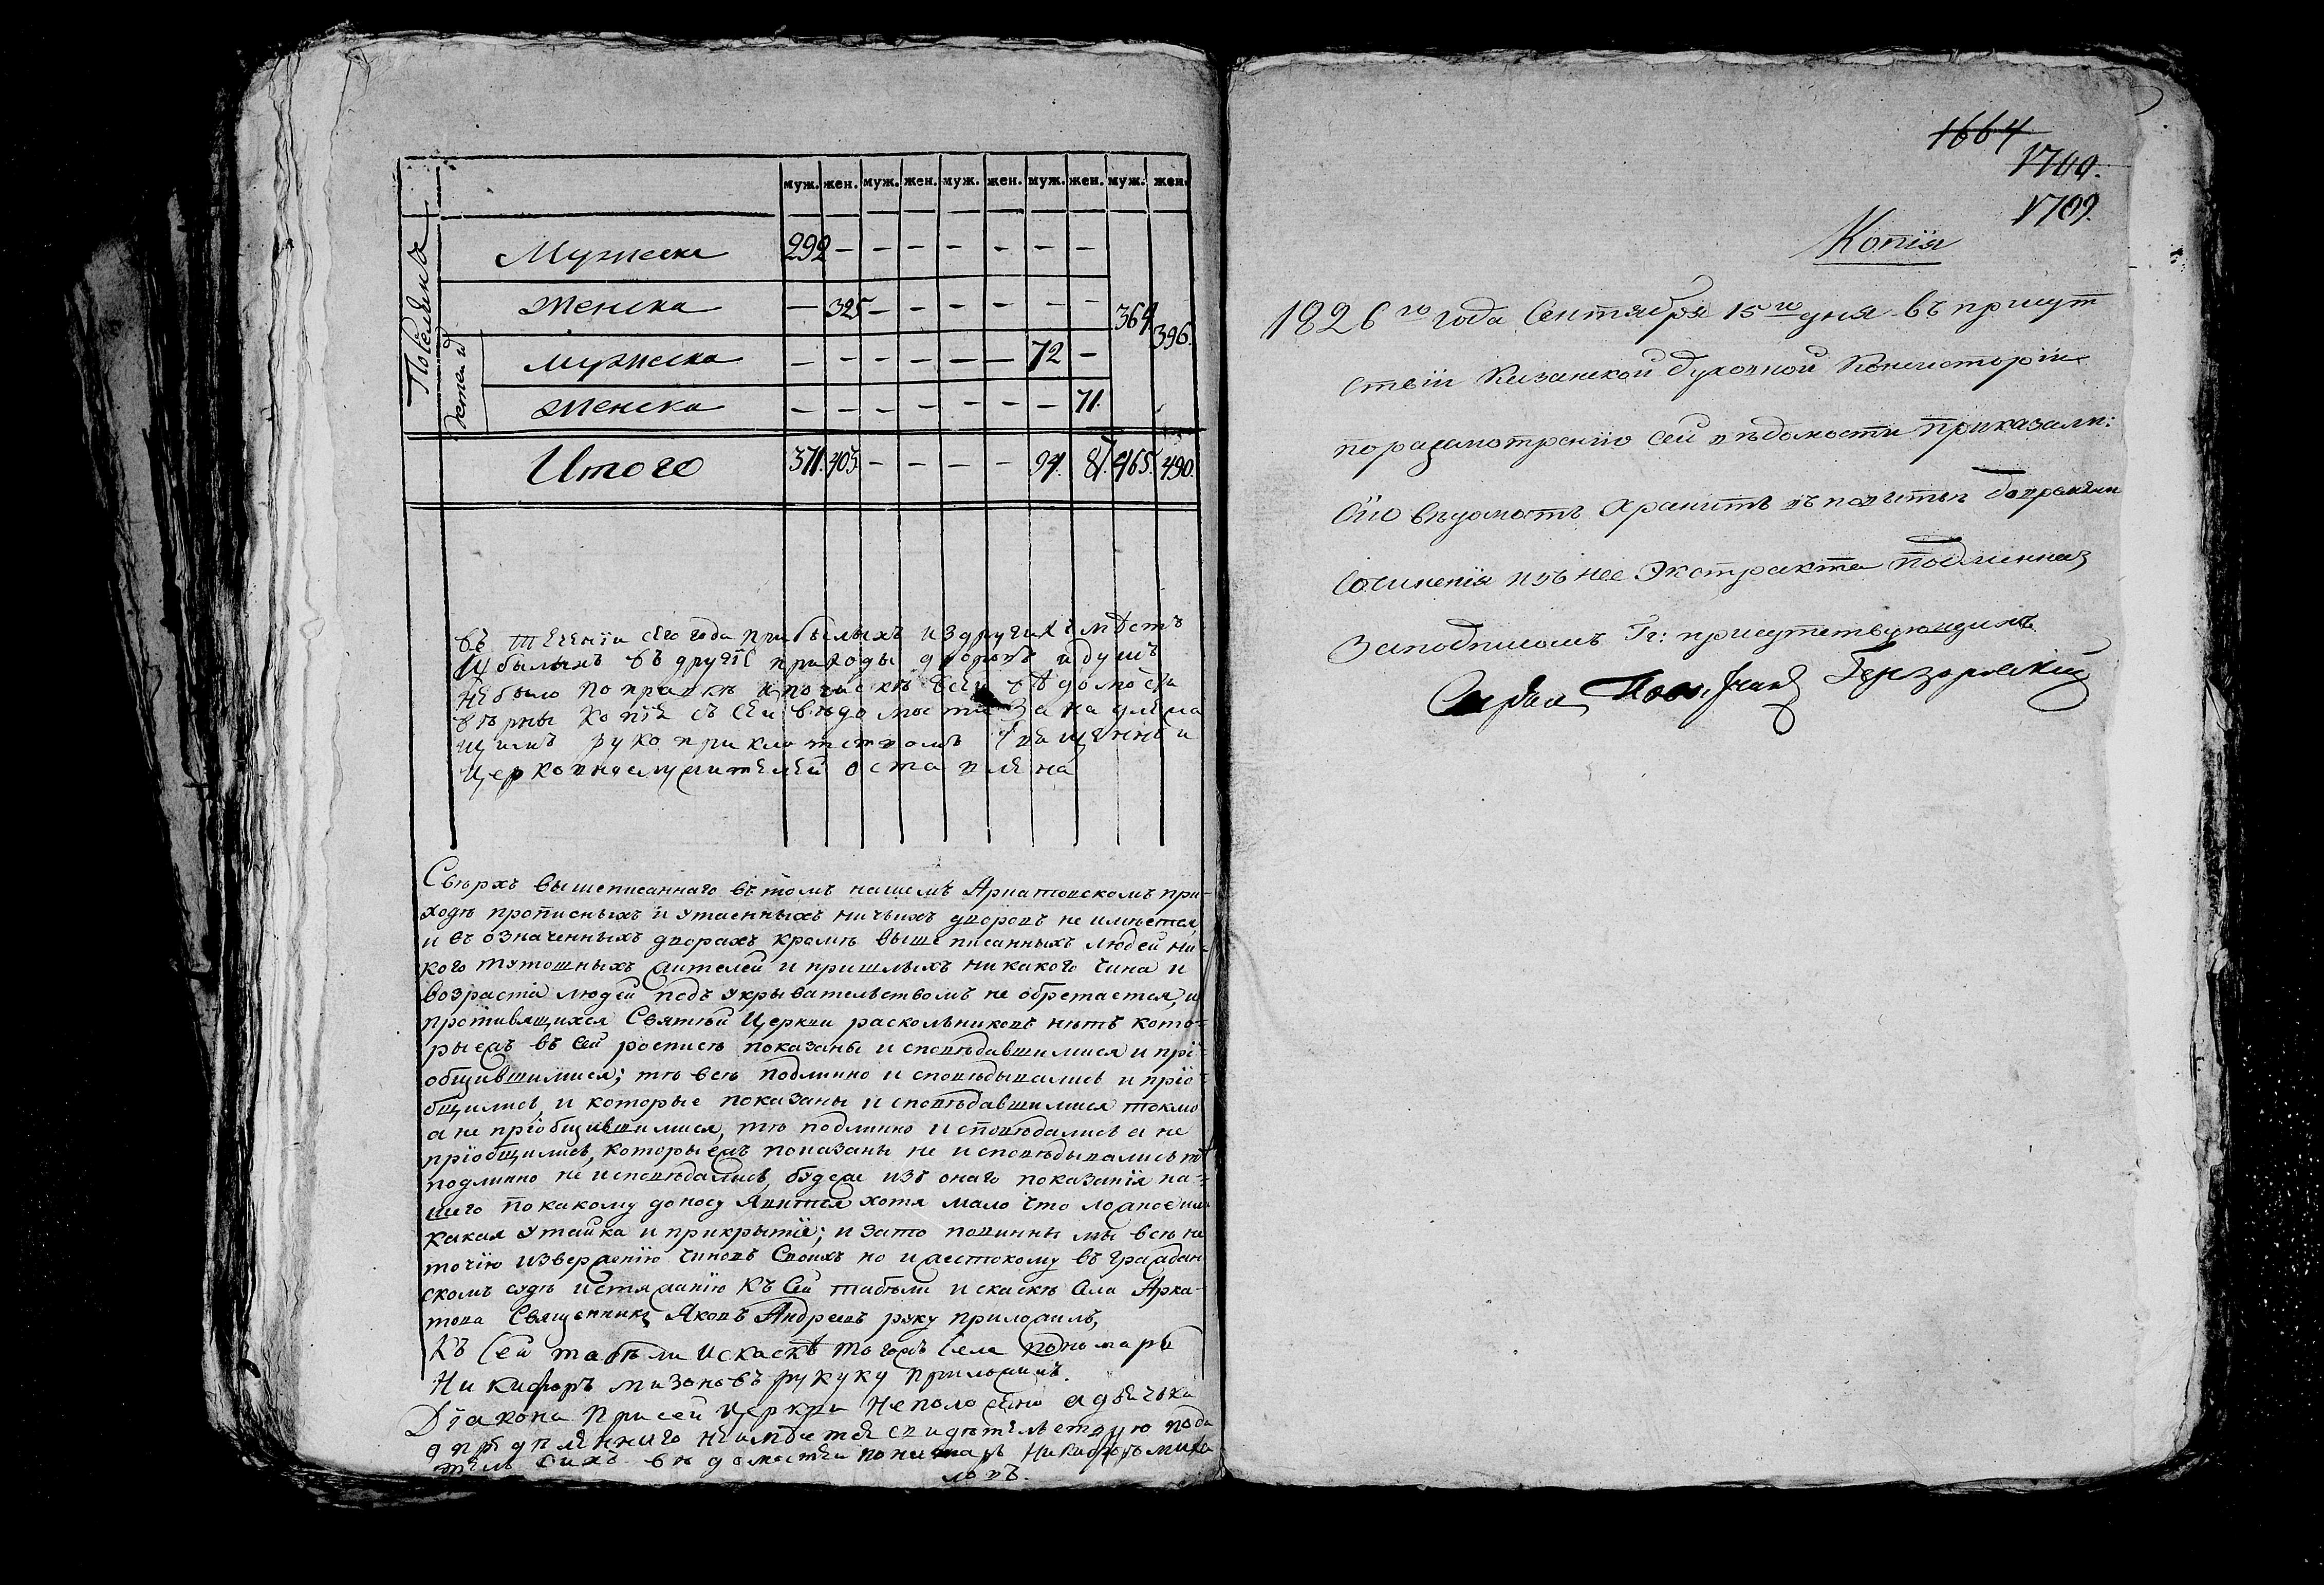 муж. жен. муж. жен. муж. жен. муж. жен. муж. жен.
Поселяна
Мужеска 292 – – – – – – –
Женска – 325 – – – – – – 364 396.
детей
мужеска – – – – – – 72 –
Женска – – – – – – – 71.
Итого 371. 403. – – – – 94. 87. 465. 490.
въ теченїи сего года прибылыхъ издругихъ мѣстъ
И убылыхъ въ другїе приходы дворовъ и душъ
небыло поправкѣ и почискѣ всей вѣдомости
вѣрны копїя съ сей вѣдомости за надлежа
щимъ рукоприкладствомъ священно и
церковнослужителей оставлена
Сверхъ вышеписаннаго въ томъ нашемъ Арнатовскомъ при-
ходѣ прописныхъ и утаенныхъ ничьихъ дворовъ не имѣется,
и въ означенныхъ дворахъ кромѣ вышеписанныхъ людей ни-
кого тутошныхъ жителей и пришлыхъ никакого чина и
возраста людей подъ укрывательствомъ не обретается, и
противящихся Святѣй Церкви раскольниковъ нѣтъ кото-
рыежъ въ сей росписѣ показаны исповѣдавшимися и прї-
общившимися; тѣ всѣ подлинно исповѣдывались и прїо-
бщились, и которые показаны исповѣдавшимися токмо
а не прїобщившимися, тѣ подлинно исповѣдались а не
прїобщились, которыежъ показаны не исповѣдывались тѣ
подлинно не исповѣдались, будеже изъ онаго показанїя на-
шего по какому доносу явится хотя мало что ложное или
какая утайка и прикрытїе; и зато повинны мы всѣ не
точїю извержению чиновъ своихъ но и жестокому въ граждан
скомъ судѣ истязанїю Къ сей табели и скаскѣ села Арка-
това Священникъ Яковъ Андреевъ руку приложилъ,
Къ сей табели искаскѣ тогожъ села пономарь
Никифоръ руку приложилъ.
Дїакона присей церкви неположено а дьячка
неимѣется свидѣтельствую пода
тель сихъ вѣдомостей пономарь Никифоръ миха
ловъ.
1664
1700.
1709.
Копїя
1826го года Сентября 15го дня въ присут
ствїи Казанской Духовной Консисторїи
поразсмотренїю сей вѣдомости приказали:
Сїю вѣдомость хранить въ повытьѣ
Сочиненїя изъ нее Экстракта подлинная
Заподписомъ Гг: присутствующихъ